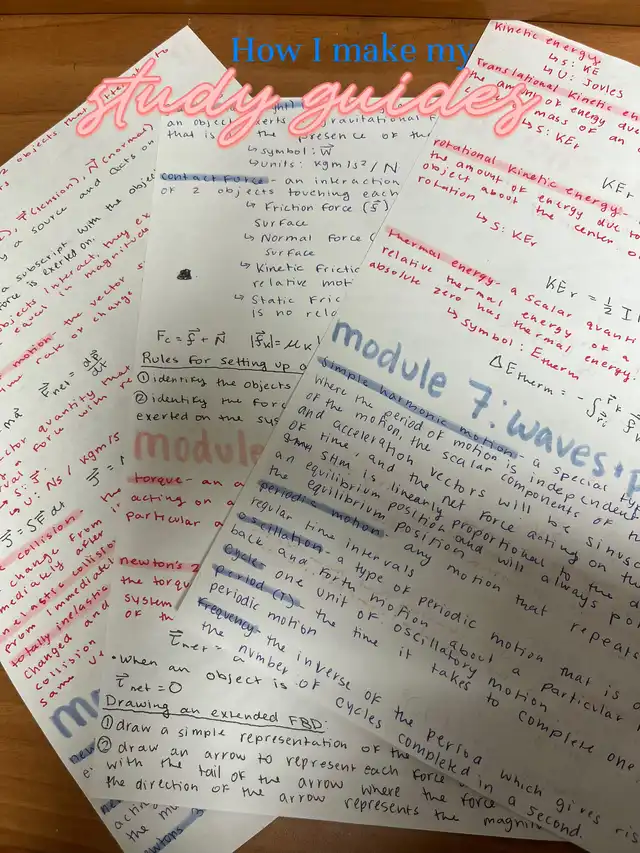 How I make my
study guides
2 objects that
(tension), N (normal)
by a source and acts on
a subscript with the object
force is exerted on.
objects interact, they
equal in magnitude
motion - the vector
rate of change
F⃗net = dp⃗/dt
vector quantity that
a force with
U: Ns / kgm/s
J⃗ = ∫F⃗ dt
collision
change from
immediately after
inelastic collision
from immediately
totally inelastic
changed and
collision
same
an object exerts gravitational
that is the presence of the
↳ symbol: W⃗
↳ units: kgm/s²/N
contact force - an interaction
of 2 objects touching each
↳ Friction force (f⃗)
surface
↳ Normal force (
surface
↳ Kinetic frictio
relative moti
↳ Static Fric
is no rela
Fc = f⃗ + N⃗ |f⃗k| = μk
Rules for setting up a
① identify the objects
② identify the forc
exerted on the sys
module
torque - an a
acting on a
particular a
newton's 2
the torqu
system
of the
τ⃗net =
• when an object is
τ⃗net = 0
Drawing an extended FBD:
① draw a simple representation of the
② draw an arrow to represent each force
with the tail of the arrow where the force
the direction of the arrow represents the magni
kinetic energy
↳ S: KE
↳ U: Joules
Translational kinetic en
the amount of energy due
mass of an
↳ S: KEt
rotational kinetic energy -
the amount of energy due to
object about the center o
rotation
KEr
↳ S: KEr
thermal energy - a scalar quanti
relative thermal energy of a
absolute zero has thermal energy
↳ symbol: Etherm
KEr = ½ I
ΔEtherm = -∫
module 7: waves +
simple harmonic motion - a special ty
where the period of motion is independent
of the motion, the scalar components of th
and acceleration vectors will be sinus
of time, and the net force acting on th
SHM is linearly proportional to the
an equilibrium position and will always po
the equilibrium position
periodic motion - any motion that repeats
regular time intervals
oscillation - a type of periodic motion that is
back and forth motion about a particular
cycle - one unit of oscillatory motion
period (T) - the time it takes to complete one
periodic motion
frequency - the inverse of the period which gives ris
the number of cycles completed in a second.